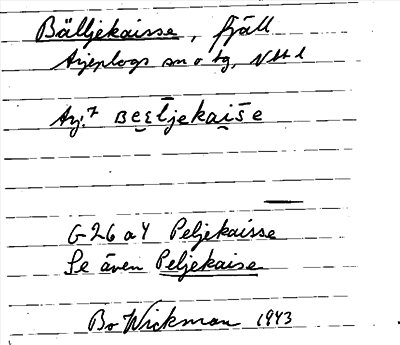 Bälljekaisse, fjäll
Arjeplogs sn o tg, Nbtl
Arj.7 BEɛljekaiše
G 26 a 4 Peljekaisse
Se även Peljekaise
Bo Wickman 1943